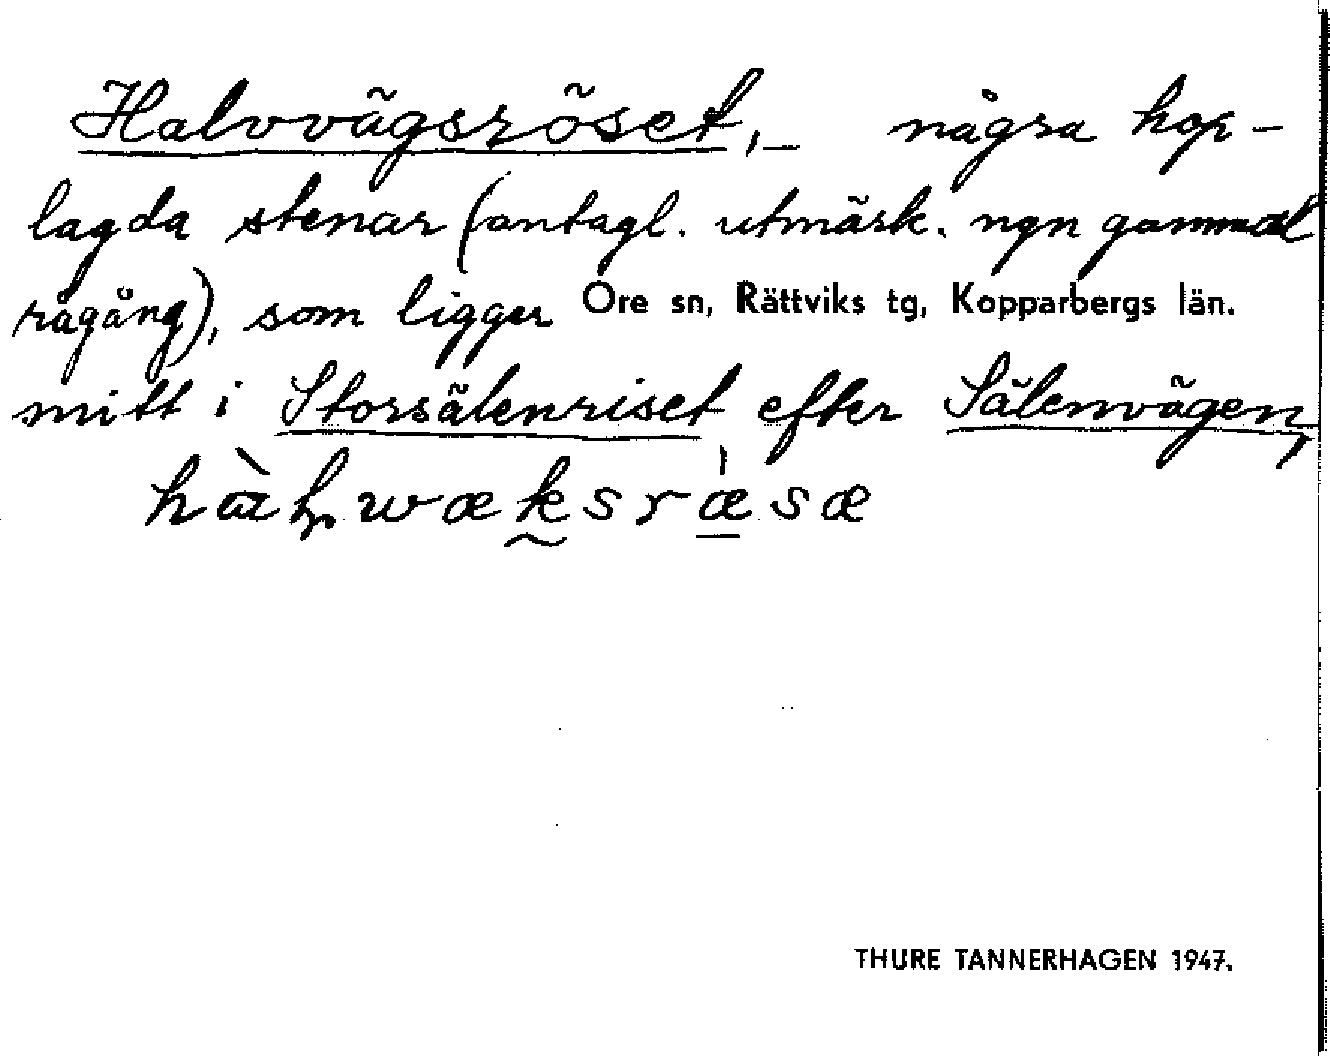 Halvvägsröset, – några hop-
lagda stenar (antagl. utmärk. ngn gammal
rågång), som ligger Ore sn, Rättviks tg, Kopparbergs län.
mitt i Storsälenriset efter Sälenvägen,
THURE TANNERHAGEN 1947.